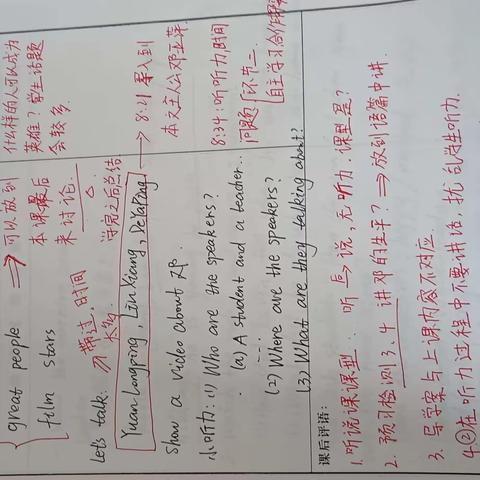 什么样的人可以成为
英雄？学生话题
会较多.
great people
film stars
⇒ 可以放到
本课最后
来讨论.
Let's talk.
不带过，时间
太多
守完之后总结
Yuan Longping, Lin Xiang, De Yaping
→ 8:21 导入到
本文主人公邓亚萍.
show a video about 邓.
小听力: (1) Who are the speakers?
(a) A student and a teacher...
(2) Where are the speakers?
(3) What are they talking about?
8:34: 听听力时间
问题 环节二
自主学习合作探究
课后评语:
1. 听说课课型. 听与说, 无听力. 课型是?
2. 预习检测3、4 讲邓的生平? → 放到语篇中讲.
3. 导学案与上课内容不对应.
4. ②在听力过程中不要讲话, 扰乱学生听力.